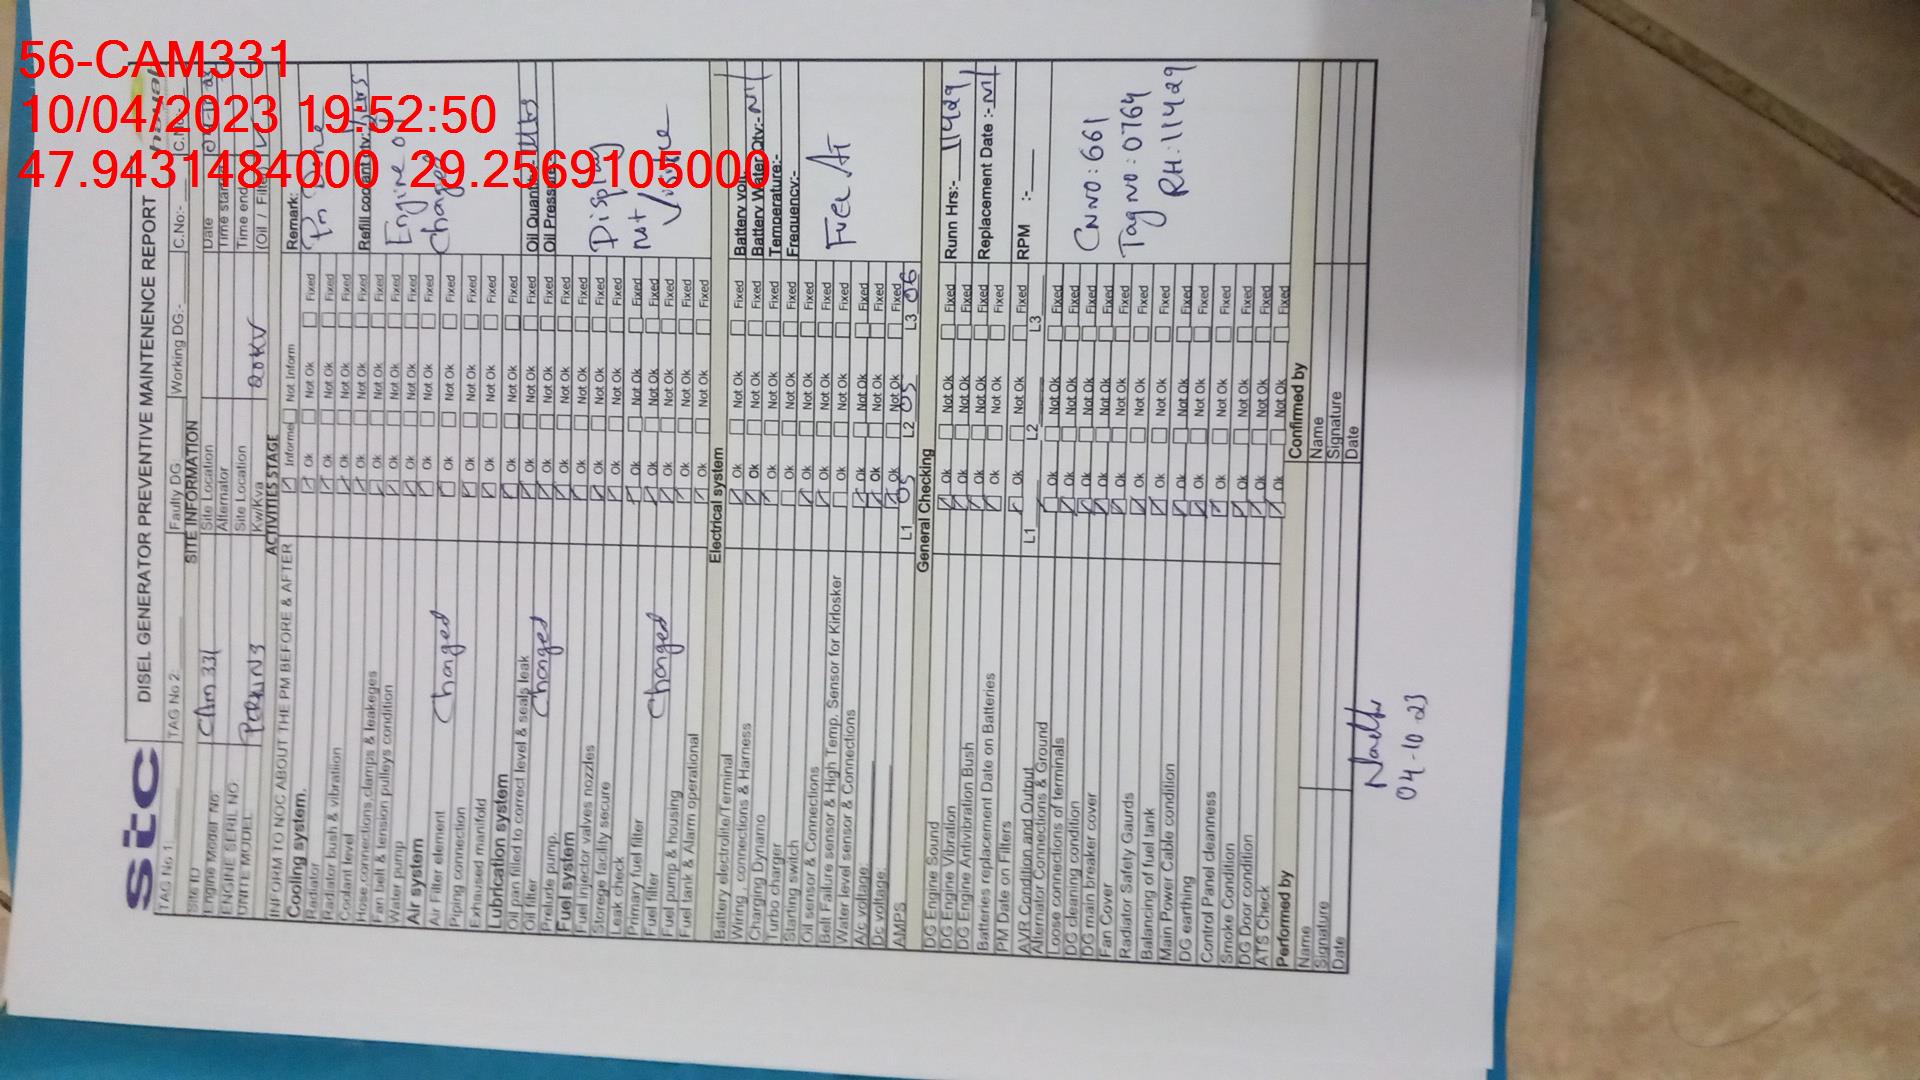 56-CAM331
10/04/2023 19:52:50
47.9431484000 29.2569105000
stc
DISEL GENERATOR PREVENTIVE MAINTENENCE REPORT
TAG No 1: TAG No 2: Faulty DG: Working DG:- C.No:- C.No:-
SITE INFORMATION
Site ID CAM 331 Site Location Date
Engine Model No: Alternator Time start
ENGINE SERIL NO Site Location Time end
UNITE MODEL PERKINS Kw/Kva 20KV (Oil / Filter)
ACTIVITIES STAGE
INFORM TO NOC ABOUT THE PM BEFORE & AFTER Informe Not Inform Remark:
Cooling system.
Radiator Ok Not Ok Fixed Pm Done
Radiator bush & vibratiion Ok Not Ok Fixed
Coolant level Ok Not Ok Fixed
Hose connections,clamps & leakeges Ok Not Ok Fixed Refill coolant qty:
Fan belt & tension pulleys condition Ok Not Ok Fixed
Water pump Ok Not Ok Fixed Engine oil
Air system Changed
Air Filter element Changed Ok Not Ok Fixed
Piping connection Ok Not Ok Fixed
Exhaused manifold Ok Not Ok Fixed
Lubrication system
Oil pan filled to correct level & seals leak Ok Not Ok Fixed Oil Quantity
Oil filter Changed Ok Not Ok Fixed Oil Pressure
Prelude pump. Ok Not Ok Fixed
Fuel system
Fuel injector valves nozzles Ok Not Ok Fixed Display
Storege facility secure Ok Not Ok Fixed not
Leak check Ok Not Ok Fixed Visible
Primary fuel filter Ok Not Ok Fixed
Fuel filter Changed Ok Not Ok Fixed
Fuel pump & housing Ok Not Ok Fixed
Fuel tank & Alarm operational Ok Not Ok Fixed
Electrical system
Battery electrolite/Terminal Ok Not Ok Fixed Battery volt
Wiring , connections & Harness Ok Not Ok Fixed Battery Water Qty:- Nil
Charging Dynamo Ok Not Ok Fixed Temperature:-
Turbo charger Ok Not Ok Fixed Frequency:-
Starting switch Ok Not Ok Fixed
Oil sensor & Connections Ok Not Ok Fixed Fuel
Belt Failure sensor & High Temp. Sensor for Kirlosker Ok Not Ok Fixed
Water level sensor & Connections Ok Not Ok Fixed
A/c voltage: Ok Not Ok Fixed
Dc voltage: Ok Not Ok Fixed
AMPS L1 05 L2 05 L3 06
General Checking
DG Engine Sound Ok Not Ok Fixed Runn Hrs:- 11429
DG Engine Vibration Ok Not Ok Fixed
DG Engine Antivibration Bush Ok Not Ok Fixed Replacement Date :- Nil
Batteries replacement Date on Batteries Ok Not Ok Fixed
PM Date on Filters Ok Not Ok Fixed RPM :-
AVR Condition and Output L1 L2 L3
Alternator Connections & Ground
Loose connections of terminals Ok Not Ok Fixed
DG cleaning condition Ok Not Ok Fixed CNNO:661
DG main breaker cover Ok Not Ok Fixed
Fan Cover Ok Not Ok Fixed Tag NO:0764
Radiator Safety Gaurds Ok Not Ok Fixed
Balancing of fuel tank Ok Not Ok Fixed RH:11429
Main Power Cable condition Ok Not Ok Fixed
DG earthing Ok Not Ok Fixed
Control Panel cleanness Ok Not Ok Fixed
Smoke Condition Ok Not Ok Fixed
DG Door condition Ok Not Ok Fixed
ATS Check Ok Not Ok Fixed
Performed by Confirmed by
Name Name
Signature Signature
Date Date
04-10-23